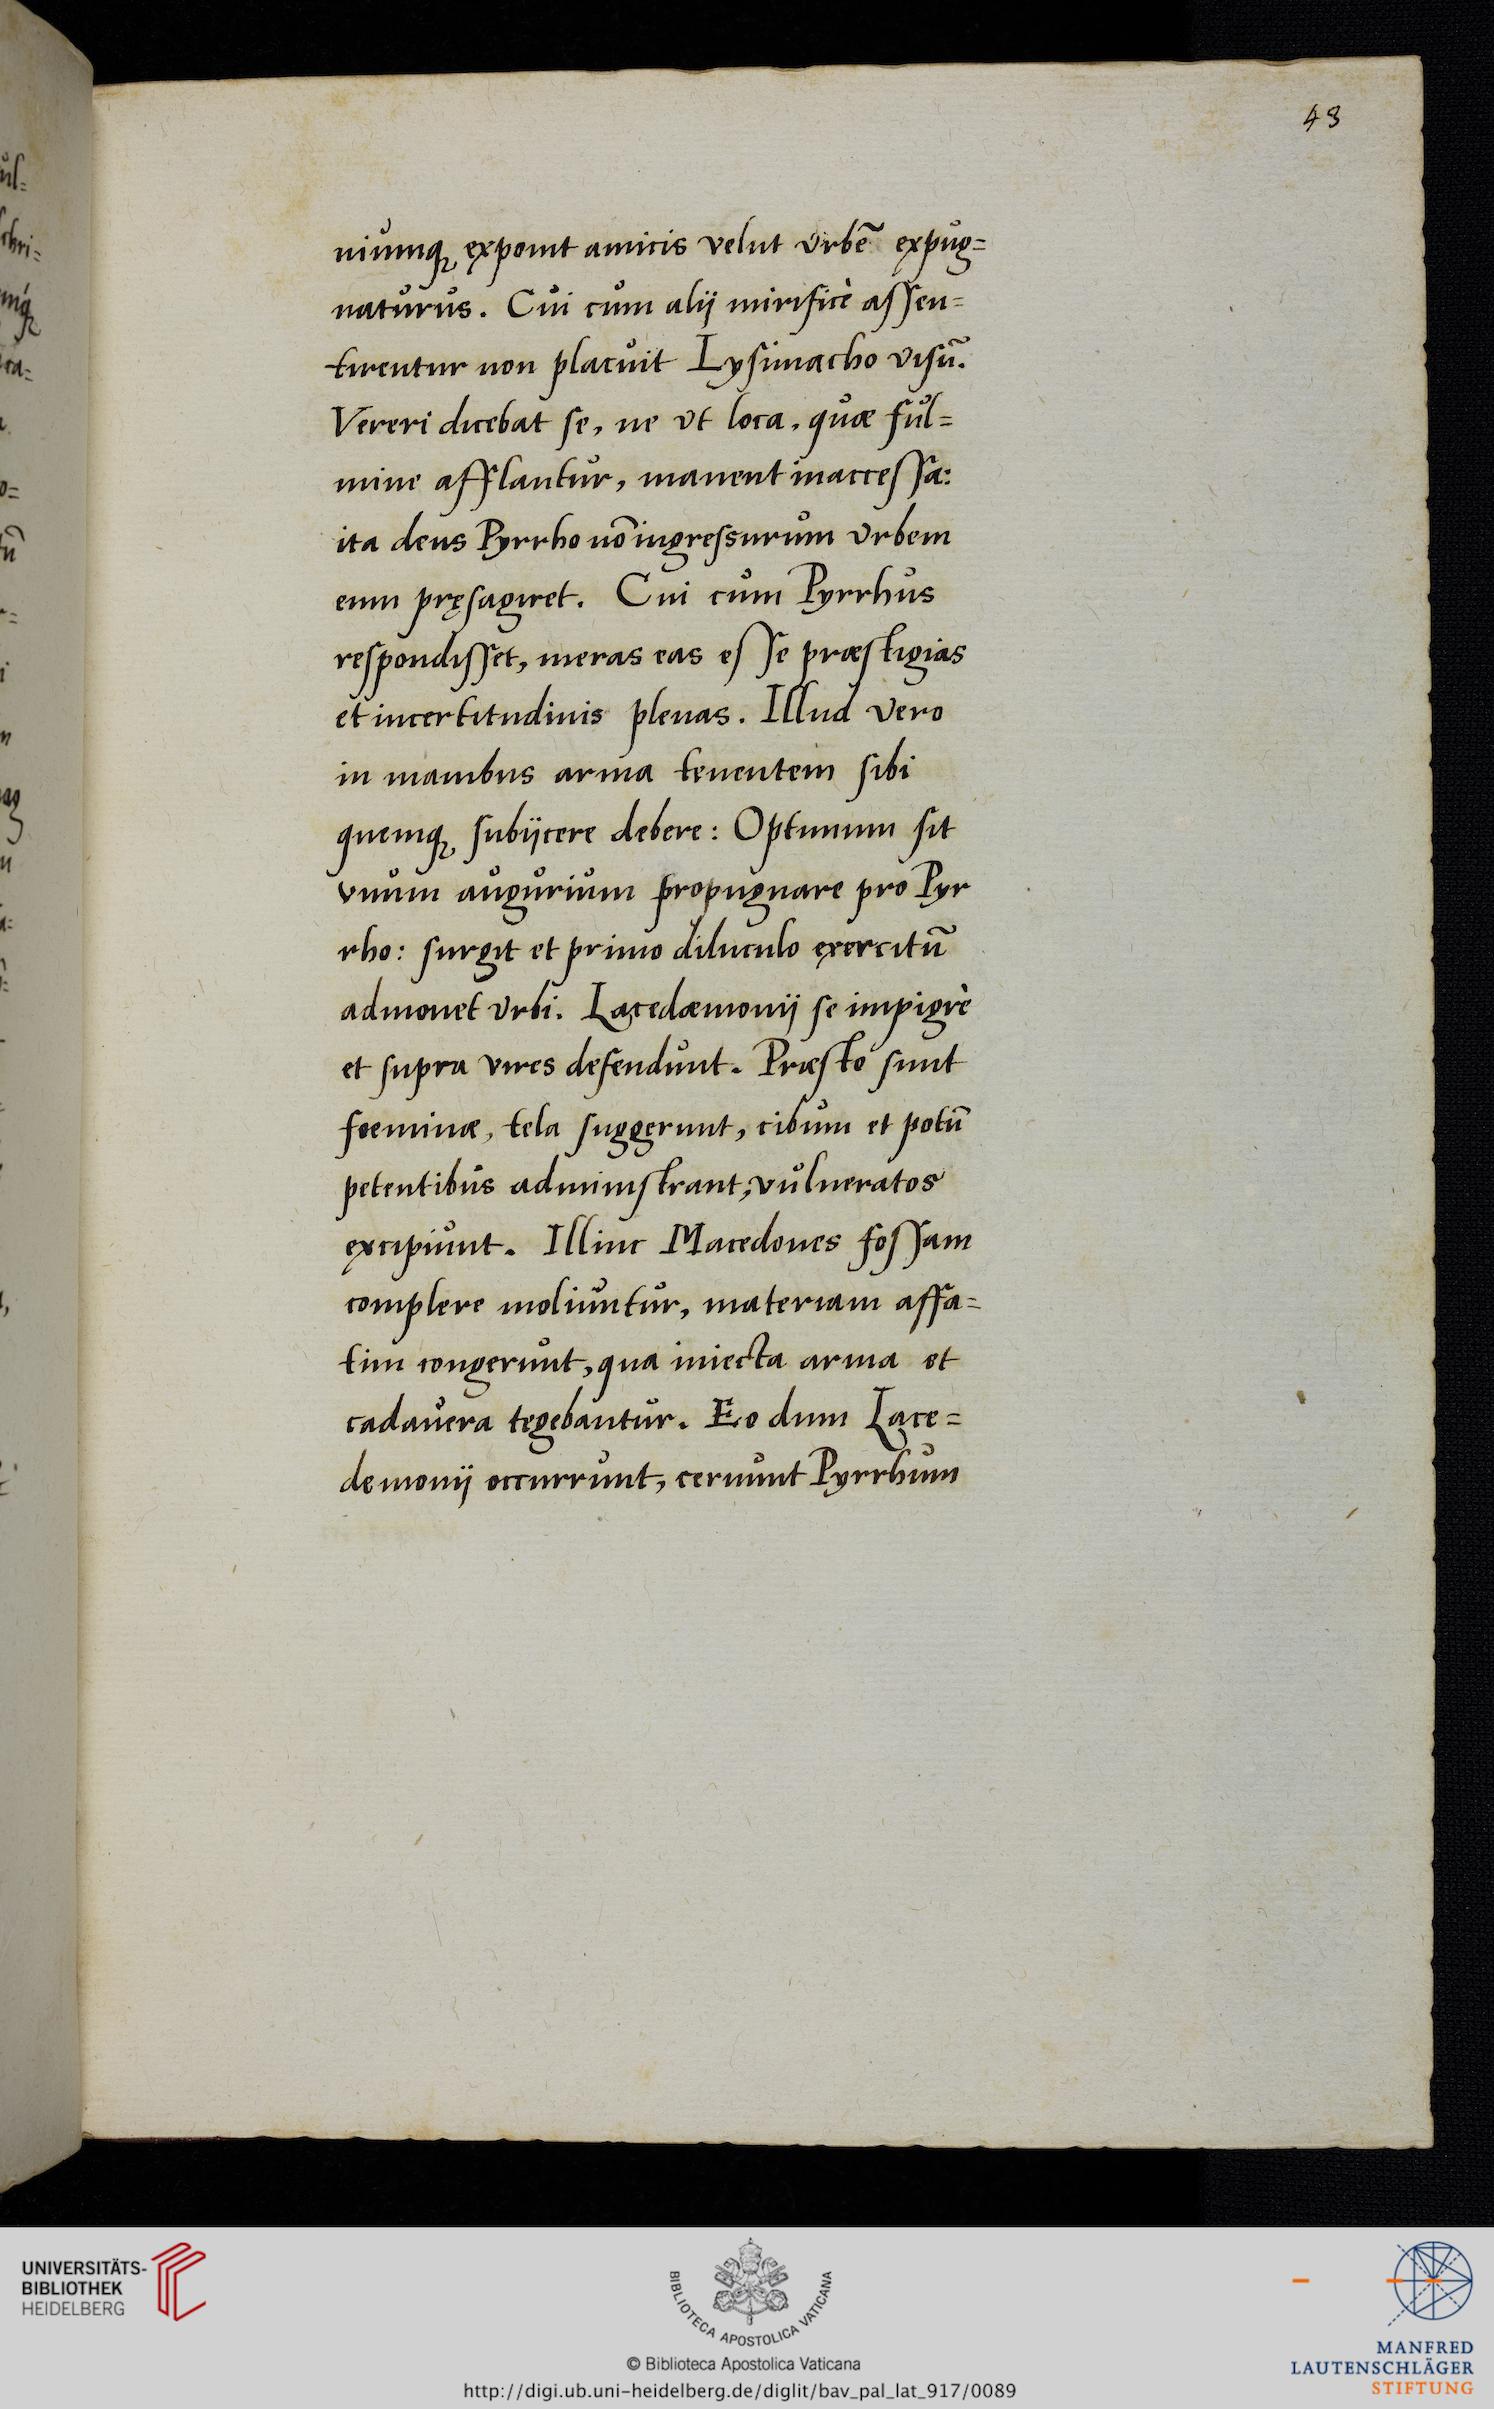 43
niumq́ꝫ exponit amicis velut vrbē expug=
naturus. Cui cum alij mirificè assen=
tirentur non placuit Lysimacho visū.
Vereri dicebat se, ne vt loca, quæ ful=
mine afflantur, manent inaccessa:
ita deus Pyrrho nō ingressurum vrbem
eum pręsagiret. Cui cum Pyrrhus
respondisset, meras eas esse præstigias
et incertitudinis plenas. Illud vero
in manibus arma tenentem sibi
quemqꝫ subijcere debere: Optimum sit
vnum augurium propugnare pro Pyr
rho: surgit et primo diluculo exercitū
admonet vrbi. Lacedæmonij se impigrè
et supra vires defendunt. Præsto sunt
foeminæ, tela suggerunt, cibum et potū
petentibus administrant, vulneratos
excipiunt. Illinc Macedones fossam
complere moliuntur, materiam affa=
tim congerunt, qua iniecta arma et
cadauera tegebantur. Eo dum Lace=
demonij occurrunt, cernunt Pyrrhum
UNIVERSITÄTS-
BIBLIOTHEK
HEIDELBERG
BIBLIOTECA APOSTOLICA VATICANA
© Biblioteca Apostolica Vaticana
http://digi.ub.uni-heidelberg.de/diglit/bav_pal_lat_917/0089
MANFRED
LAUTENSCHLÄGER
STIFTUNG